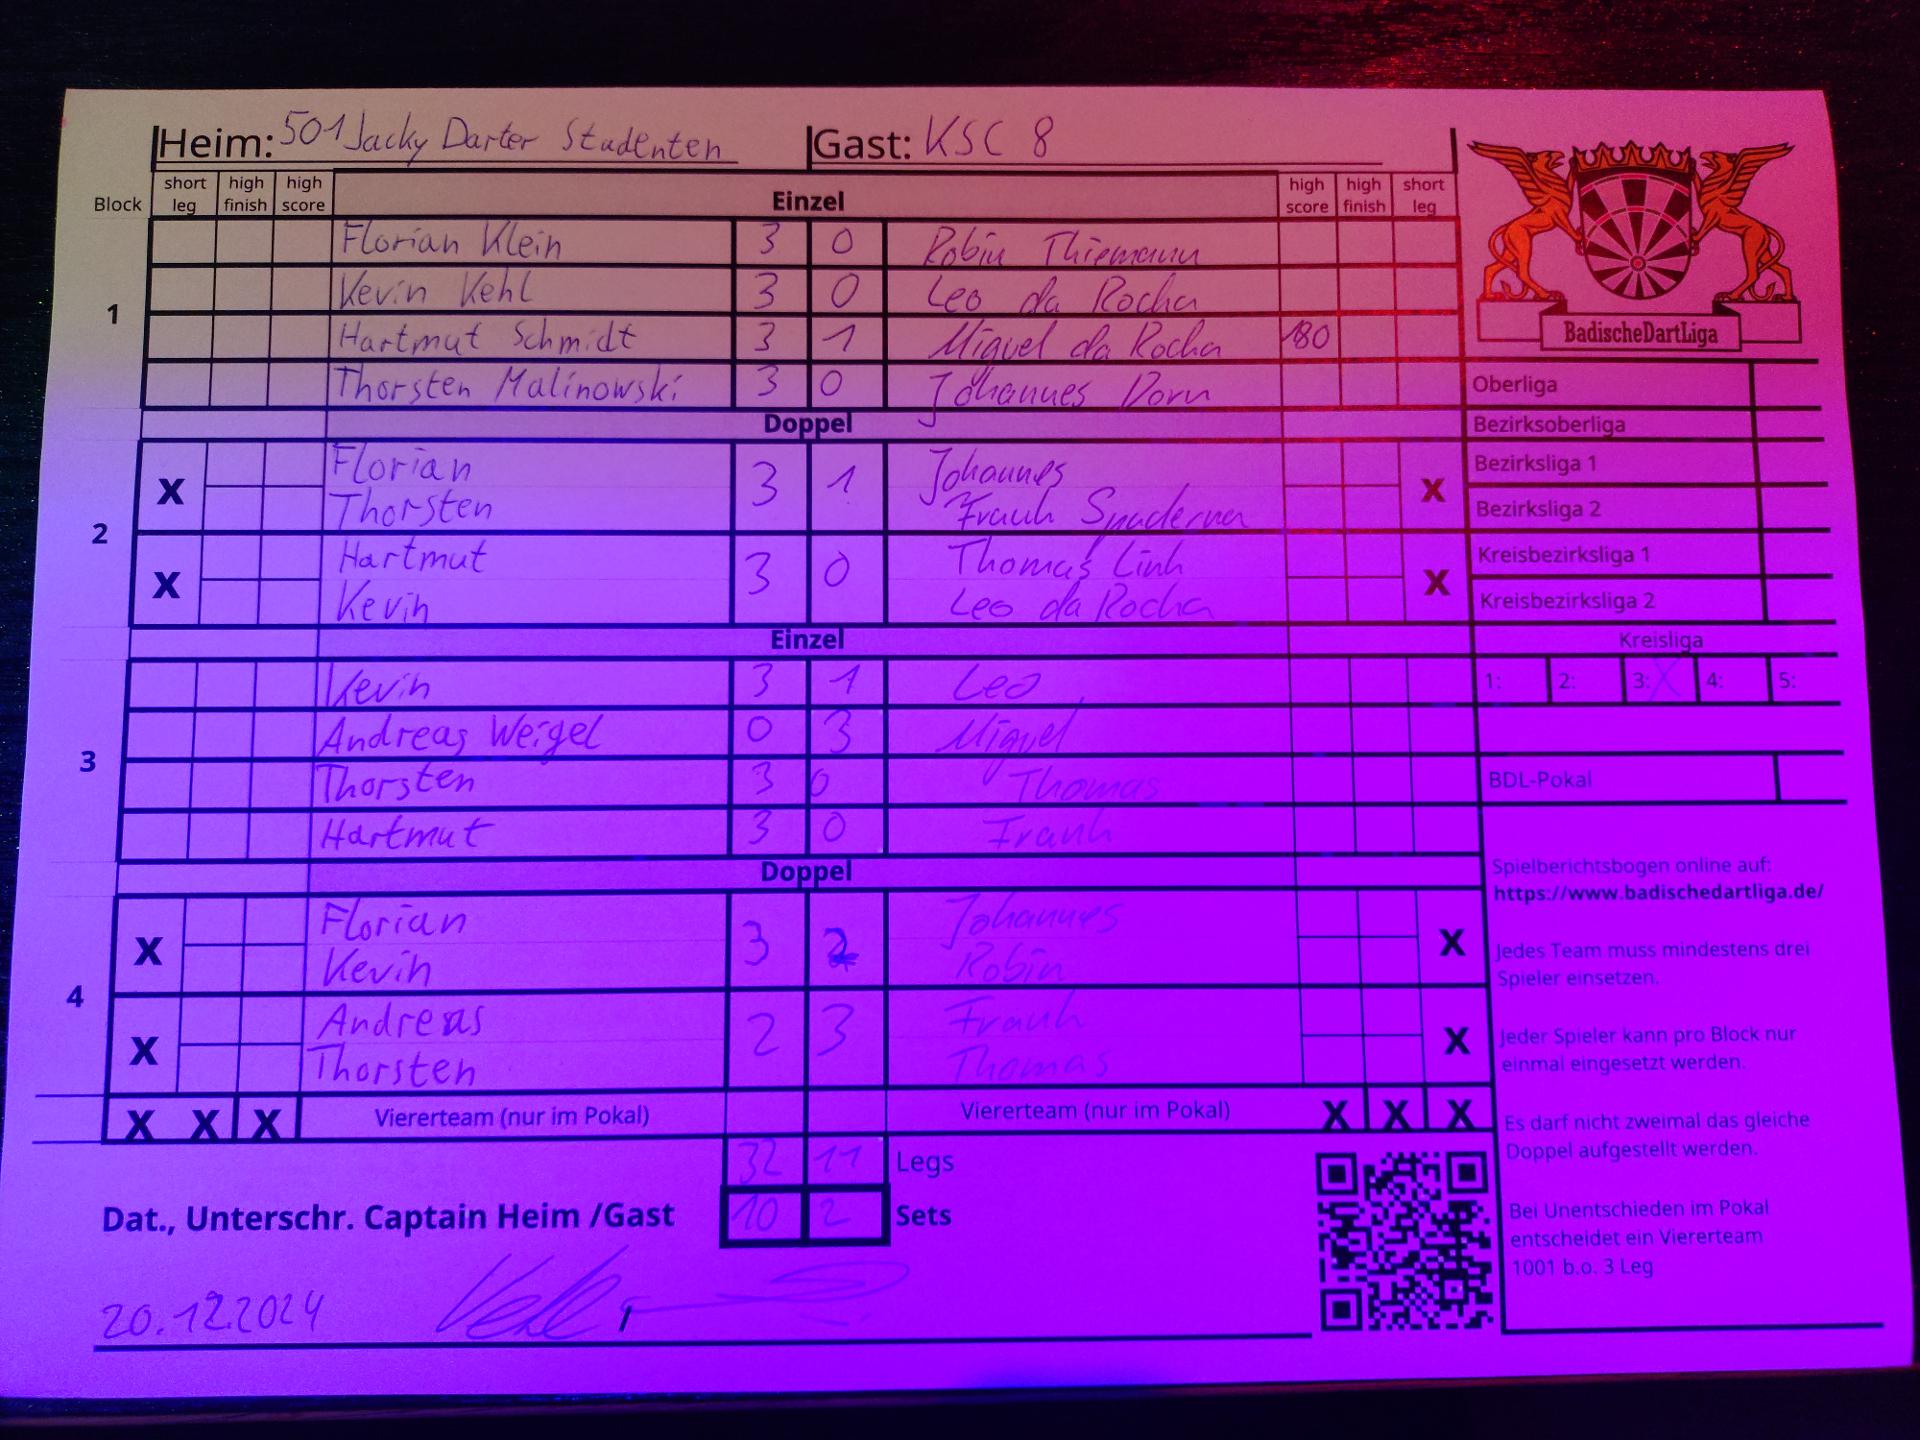 Heim: 501 Jacky Darter Studenten Gast: KSC 8
Block short leg high finish high score Einzel high score high finish short leg
1
Florian Klein 3 0 Robin Thiemann
Kevin Kehl 3 0 Leo da Rocha
Hartmut Schmidt 3 1 Miguel da Rocha 180
Thorsten Malinowski 3 0 Johannes Dorn
Doppel
2
X Florian 3 1 Johannes X
Thorsten Frank Spaderna
X Hartmut 3 0 Thomas Link X
Kevin Leo da Rocha
Einzel
3
Kevin 3 1 Leo
Andreas Weigel 0 3 Miguel
Thorsten 3 0 Thomas
Hartmut 3 0 Frank
Doppel
4
X Florian 3 2 Johannes X
Kevin Robin
X Andreas 2 3 Frank X
Thorsten Thomas
X X X Viererteam (nur im Pokal) Viererteam (nur im Pokal) X X X
32 11 Legs
Dat., Unterschr. Captain Heim /Gast 10 2 Sets
20.12.2024
BadischeDartLiga
Oberliga
Bezirksoberliga
Bezirksliga 1
Bezirksliga 2
Kreisbezirksliga 1
Kreisbezirksliga 2
Kreisliga
1: 2: 3: X 4: 5:
BDL-Pokal
Spielberichtsbogen online auf:
https://www.badischedartliga.de/
Jedes Team muss mindestens drei
Spieler einsetzen.
Jeder Spieler kann pro Block nur
einmal eingesetzt werden.
Es darf nicht zweimal das gleiche
Doppel aufgestellt werden.
Bei Unentschieden im Pokal
entscheidet ein Viererteam
1001 b.o. 3 Leg